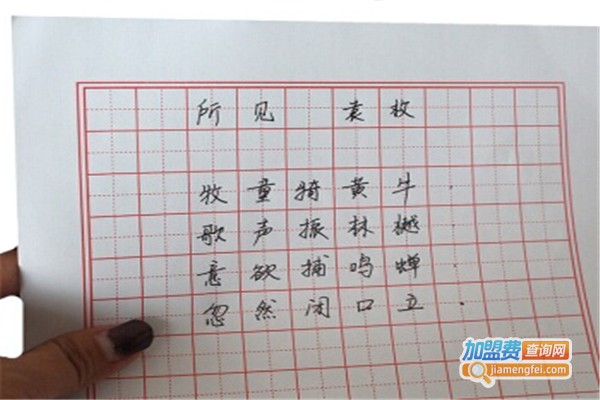 所见 袁枚
牧童骑黄牛，
歌声振林樾
意欲捕鸣蝉
忽然闭口立。
加盟费查询网
jiamengfei.com